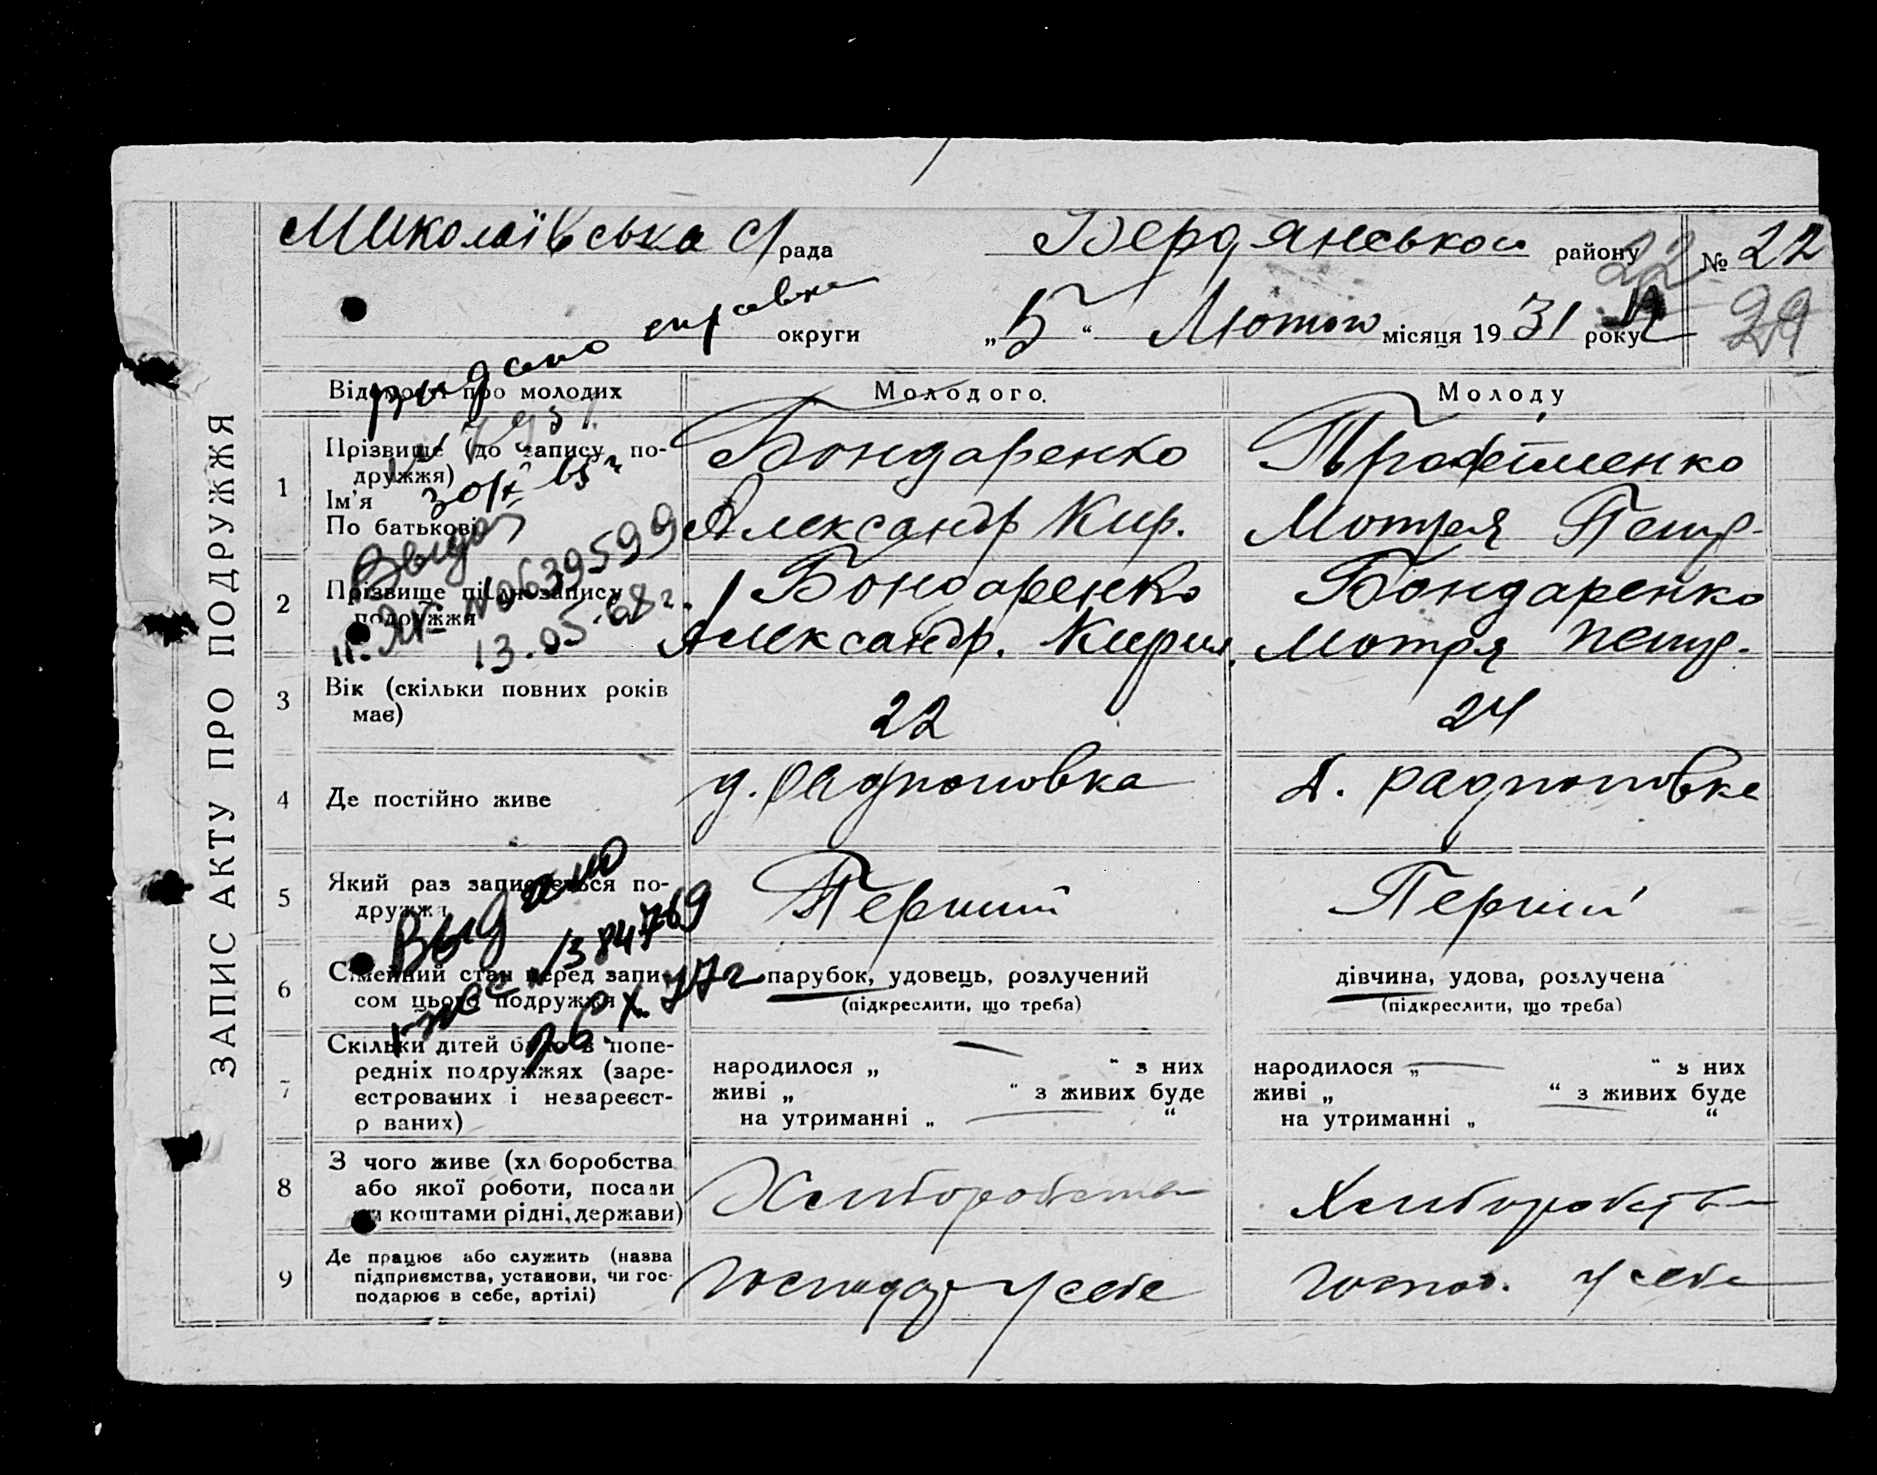 ЗАПИС АКТУ ПРО ПОДРУЖЖЯ
Миколаївська С/рада Бердянськои району № 22
22 29
округи „5“ Лютого місяця 1931 року
видано справка
30/X 65 г
Выдан
№ 0639599
13.05.68 г.
Выдано
1384769
26.X.77 г
Відомості про молодих Молодого. Молоду
1 Прізвище (до запису по-
дружжя) Бондаренко Трофименко
Ім'я
По батькові Александр Кир. Мотря Петр.
2 Прізвище після запису Бондаренко Бондаренко
подружжя Александр. Кирил. Мотря Петр.
3 Вік (скільки повних років
має) 22 24
4 Де постійно живе д. Радионовка д. Радионовке
5 Який раз записується по-
дружжя Перший Перший
6 Сімейний стан перед запи- парубок, удовець, розлучений дівчина, удова, розлучена
сом цього подружжя (підкреслити, що треба) (підкреслити, що треба)
7 Скільки дітей було в попе-
редніх подружжях (заре- народилося „ — “ з них народилося „ — “ з них
єстрованих і незареєст- живі „ “ з живих буде живі „ “ з живих буде
рованих) на утриманні „ — “ на утриманні „ — “
8 З чого живе (хліборобства
або якої роботи, посади Хлиборобства Хлиборобства
чи коштами рідні, держави)
9 Де працює або служить (назва
підприємства, установи, чи гос- Господар у себе Господ. у себе
подарює в себе, артілі)